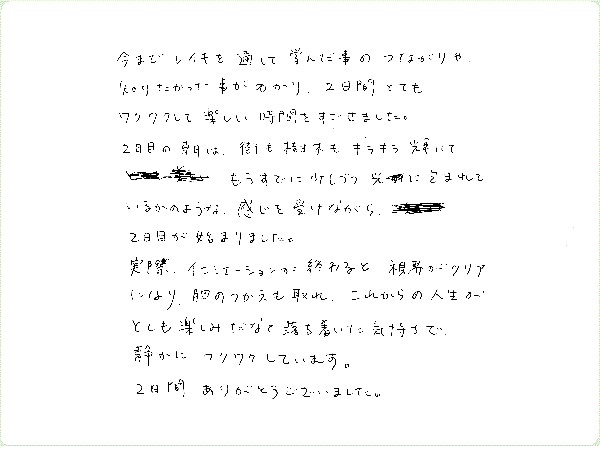 今までレイキを通して学んだ事のつながりや、
知りたかった事がわかり、2日間とても
ワクワクして楽しい時間をすごせました。
2日目の朝は、街も樹木もキラキラ輝いて
もうすでに少しづつ光に包まれて
いるかのような、感じを受けながら、
2日目が始まりました。
実際、イニシエーションが終わると視界がクリア
になり、胸のつかえも取れ、これからの人生が
とても楽しみだなと落ち着いた気持ちで、
静かにワクワクしています。
2日間ありがとうございました。